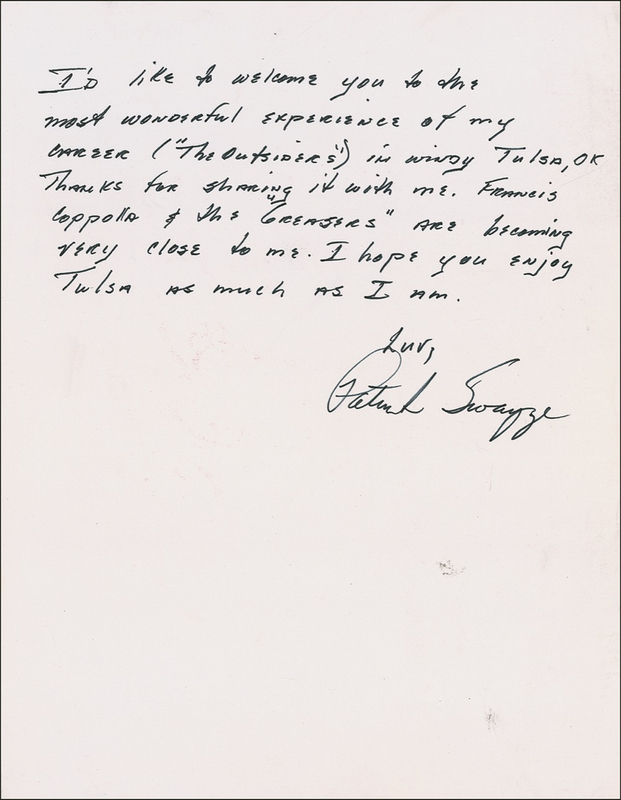 I'D like to welcome you to the
most wonderful experience of my
career ("The Outsiders") in windy Tulsa, OK
Thanks for sharing it with me. Francis
Coppolla & the "Greasers" are becoming
very close to me. I hope you enjoy
Tulsa as much as I am.
Luv,
Patrick Swayze